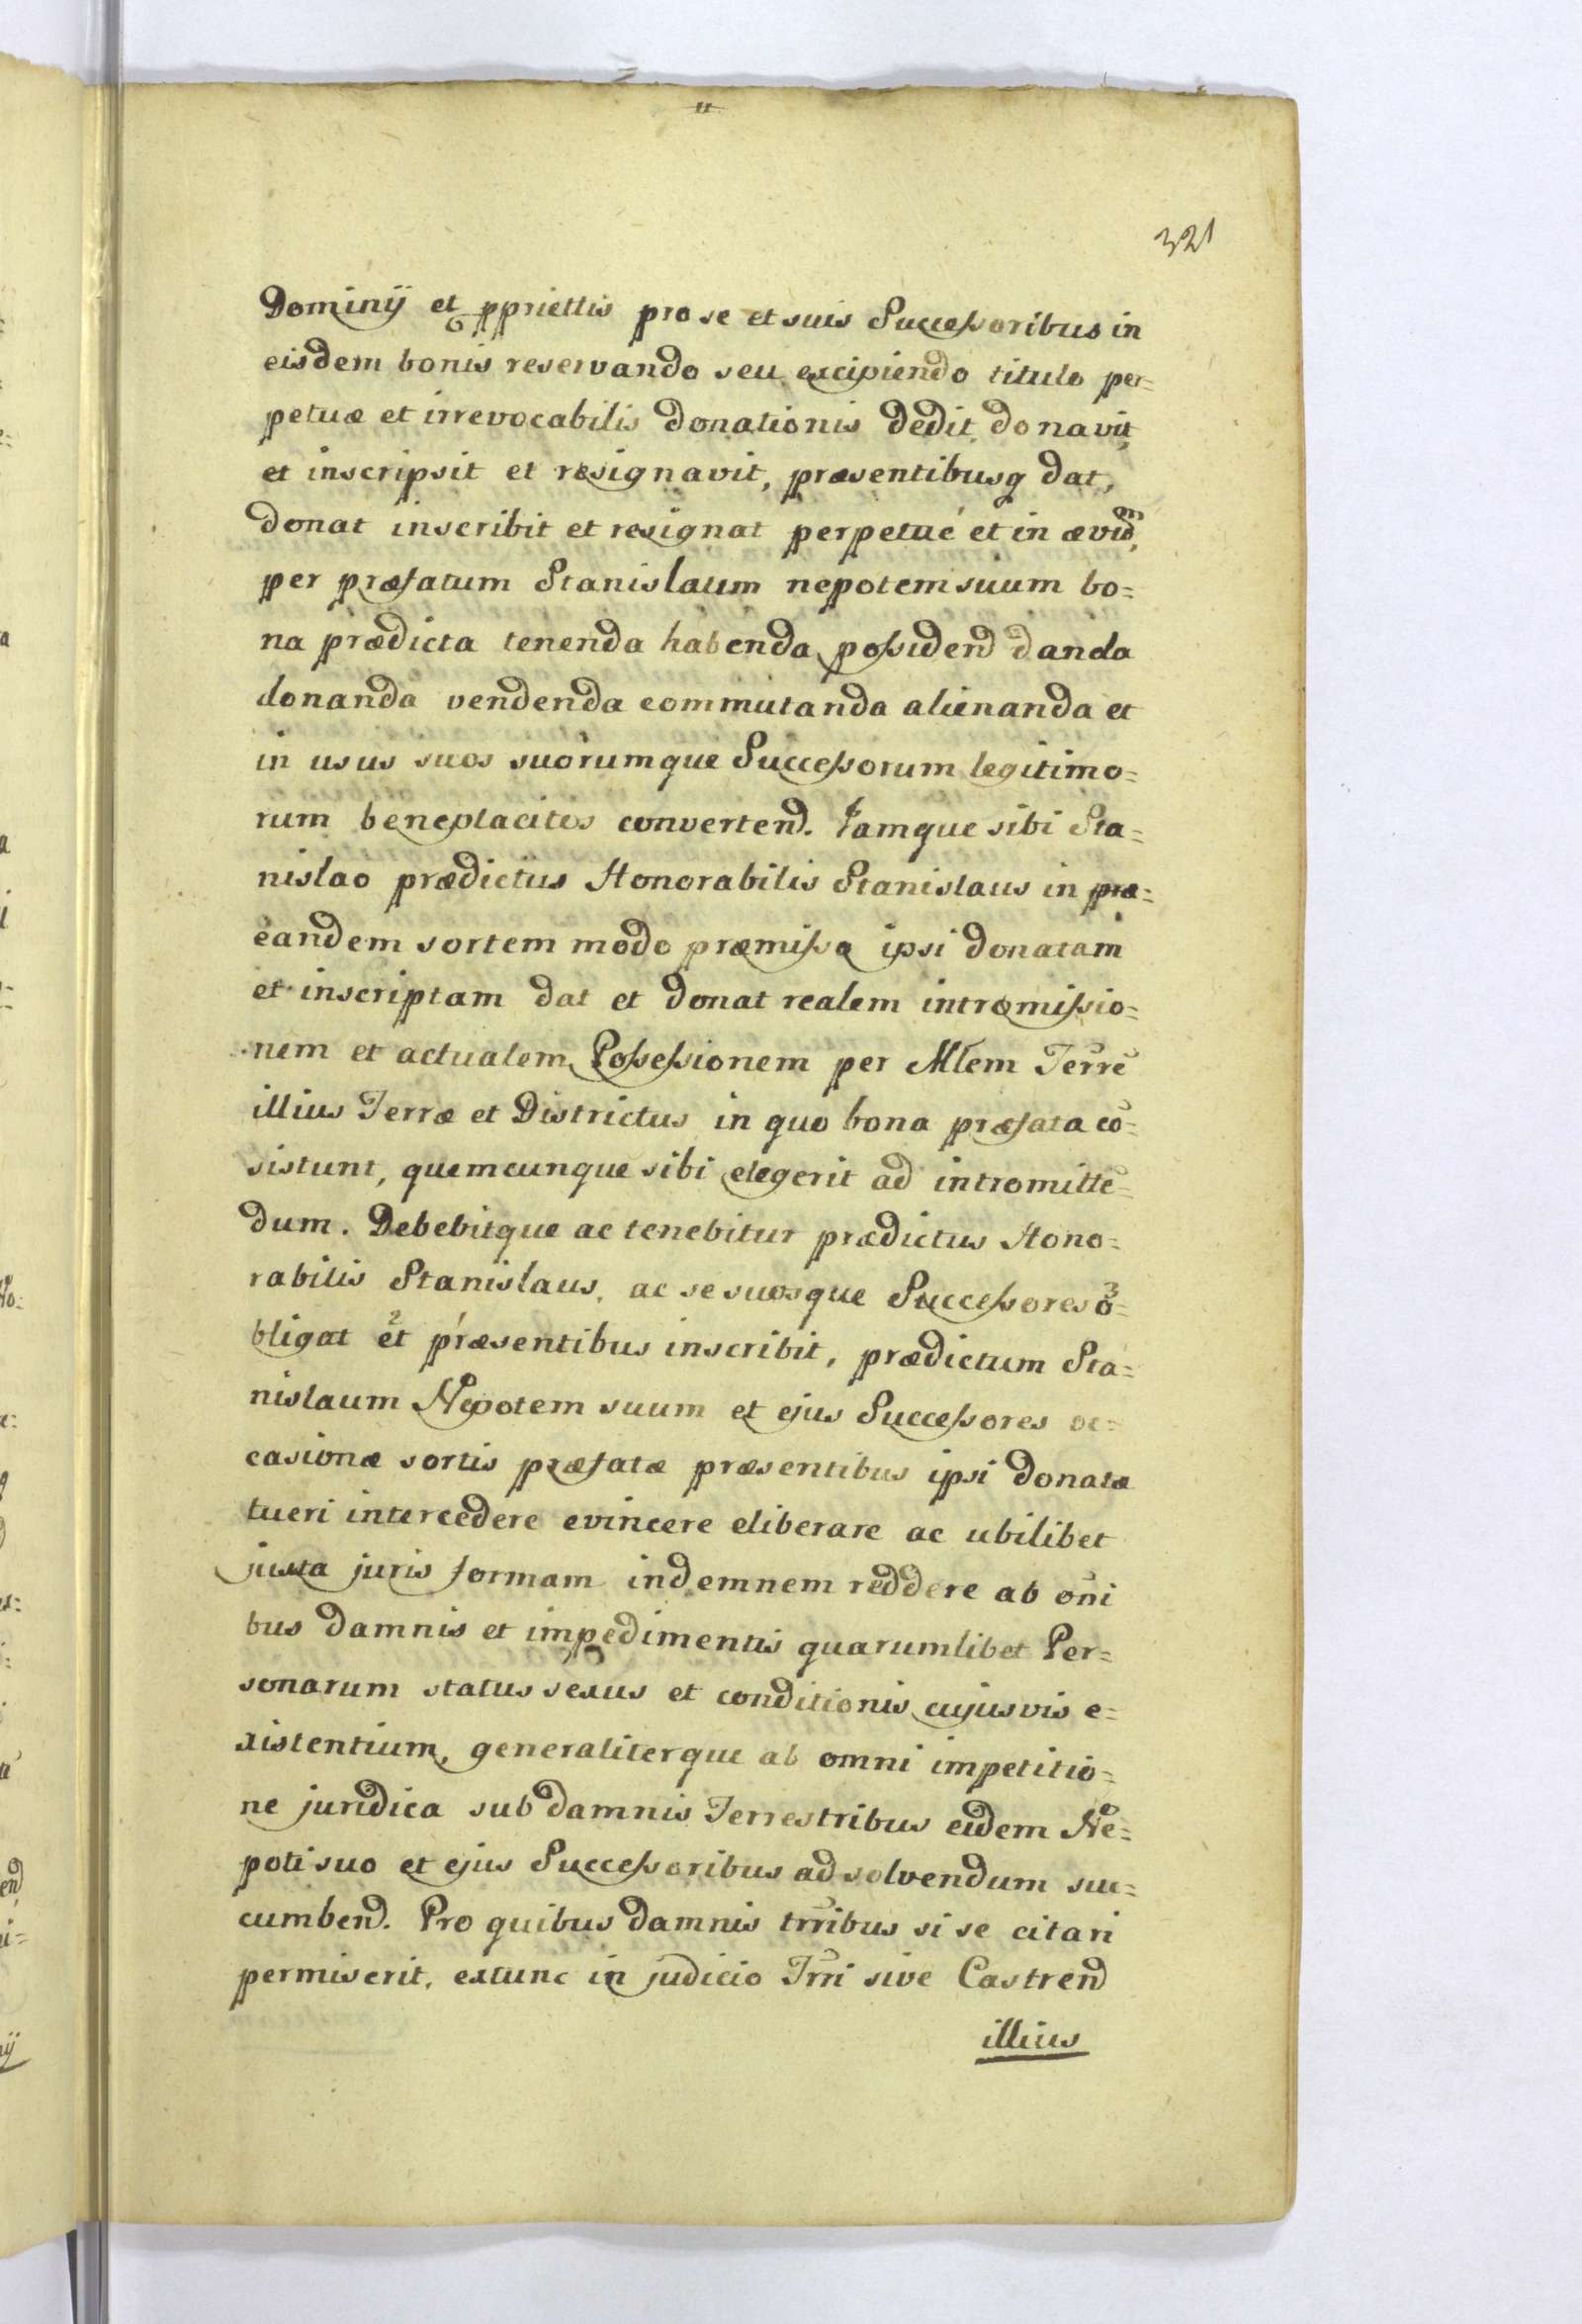 11
321
Dominÿ et ppriettis pro se et suis Successoribus in
eisdem bonis reservando seu excipiendo titulo per=
petuæ et irrevocabilis donationis dedit donavit
et inscripsit et resignavit, præsentibusq dat,
donat inscribit et resignat perpetué et in ævũ,
per præfatum Stanislaum nepotem suum bo=
na prædicta tenenda habenda possidend danda
donanda vendenda commutanda alienanda et
in usus suos suorumque Successorum legitimo=
rum beneplacitos convertend. Iamque sibi Sta=
nislao prædictus Honorabilis Stanislaus in præ=
eandem sortem modo præmisso ipsi donatam
et inscriptam dat et donat realem intromissio=
nem et actualem Possessionem per Mlem Terrē
illius Terræ et Districtus in quo bona præfata cō=
sistunt, quemcunque sibi elegerit ad intromittē=
dum. Debebitque ac tenebitur prædictus Hono=
rabilis Stanislaus, ac se suosque Successores o=
bligat et præsentibus inscribit, prædictum Sta=
nislaum Nepotem suum et ejus Successores oc=
casionæ sortis præfatæ præsentibus ipsi donatæ
tueri intercedere evincere eliberare ac ubilibet
juxta juris formam indemnem reddere ab oñi
bus damnis et impedimentis quarumlibet Per=
sonarum status sexus et conditionis cujusvis e=
xistentium, generaliterque ab omni impetitio=
ne juridica sub damnis Terrestribus eidem Ne=
poti suo et ejus Successoribus ad solvendum suc=
cumbend. Pro quibus damnis trr̃ibus si se citari
permiserit, extunc in judicio Trr̃i sive Castrend
illius